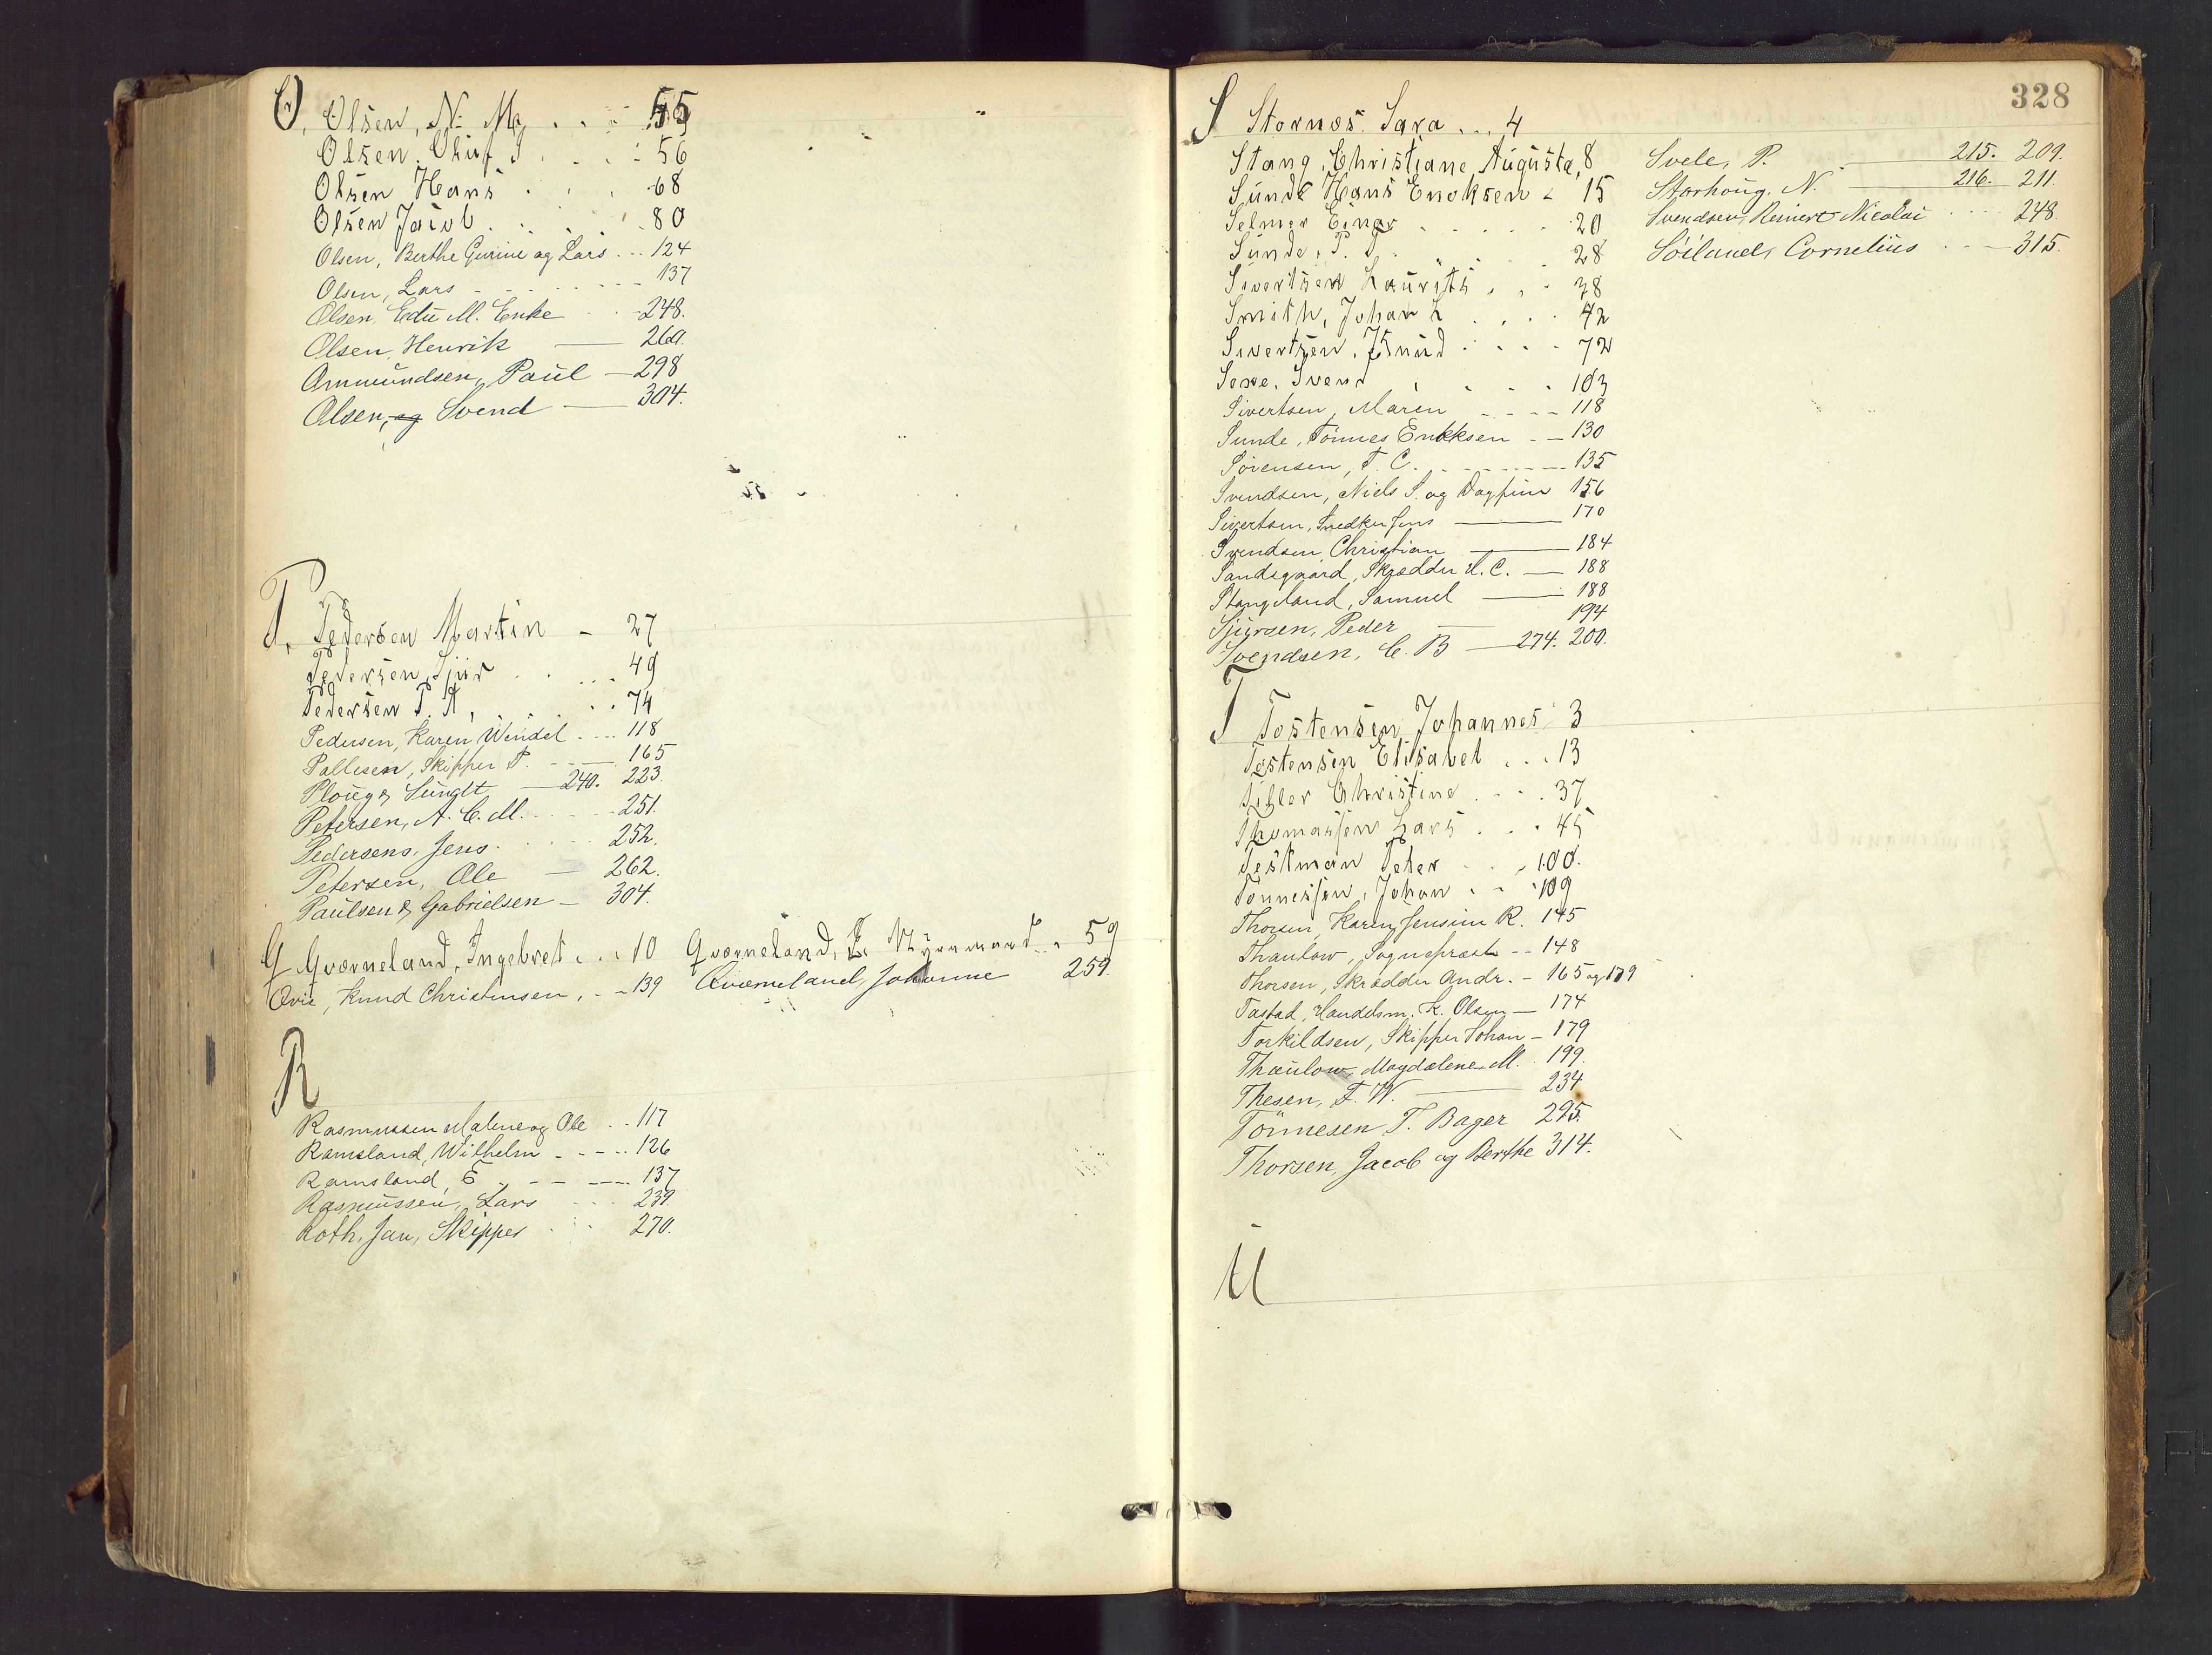 O, Olsen, N. M. . . . 55
Olsen, Oluf S. . . . 56
Olsen Hans . . . 68
Olsen Jacob . . . 80
Olsen, Berthe Gurine og Lars . . . 124
Olsen, Lars - - - - - 137
Olsen, Edu M. Enke . . . 248.
Olsen, Henrik — 260.
Ommundsen, Paul — 298
Olsen, og Svend — 304.
P. Pedersen Martin - 27
Pedersen, Sjur . . . . 49
Pedersen P. A, . . 74
Pedersen, Karen Wendel . . . . 118
Pallesen, Skipper P. — 165
Ploug & Sundt — 240. 223.
Petersen, A. C. M. . . . 251.
Pedersens, Jens . . . 252.
Petersen, Ole — 262.
Paulsen & Gabrielsen — 304.
Q Qværneland, Ingebret . . . 10 Qværneland, . . 59
Qvie, Knud Christensen, . - 139 Qværneland, Johanne 259.
R
Rasmussen Malene og Ole . . 117
Ramsland, Wilhelm - - - . . 126
Ramsland, E. - - - - . 137
Rasmussen, Lars . . . 239.
Roth, Jan, Skipper . . . 270.
328
S Stornæs, Sara . . . 4
Stang, Christiane Augusta, 8
Sunde Hans Enoksen - 15
Selmer Einar . . . . . 20
Sunde, P. T. . . . 28
Sivertsen Laurits . . . 38
Smith, Johan L . . . . 42
Sivertsen, Knud . . . . 72
Sexe, Svend . . . . 103
Sivertsen, Maren - - - - 118
Sunde, Tønnes Enokksen - - 130
Sørensen, T. C. - - - - - 135
Svendsen, Niels S. og Dagfin 156
Sivertsen, Snedker Jens — 170
Svendsen Christian — 184
Sandsgaard, Skrædder H. C. — 188
Stangeland, Samuel — 188
Sjursen, Peder — 194
Svendsen, C. B — 274. 200.
Svele, P. — 215. 209.
Storhoug, N. — 216. 211.
Svendsen, Reinert Nicolai . . . . 248
Söiland, Cornelius . . — 315.
T Tostensen, Johannes 3
Tostensen Elisabet . . . 13
Tiller Christine . . . . 37
Thomassen Lars . . . 45
Testman Peter . . . 100.
Tønnessen, Johan . . 109
Thorsen, Karen Jensine R. 145
Thaulow, Sognepræst - - 148
Thorsen, Skrædder Andr. - 165 og 179
Tastad, Handelsm. K. Olsen — 174
Torkildsen, Skipper Johan - 179
Thaulow, Magdalene M. 199.
Thesen, F. W. — 234
Tönnesen, T. Bager 295.
Thorsen, Jacob og Berthe 314.
U